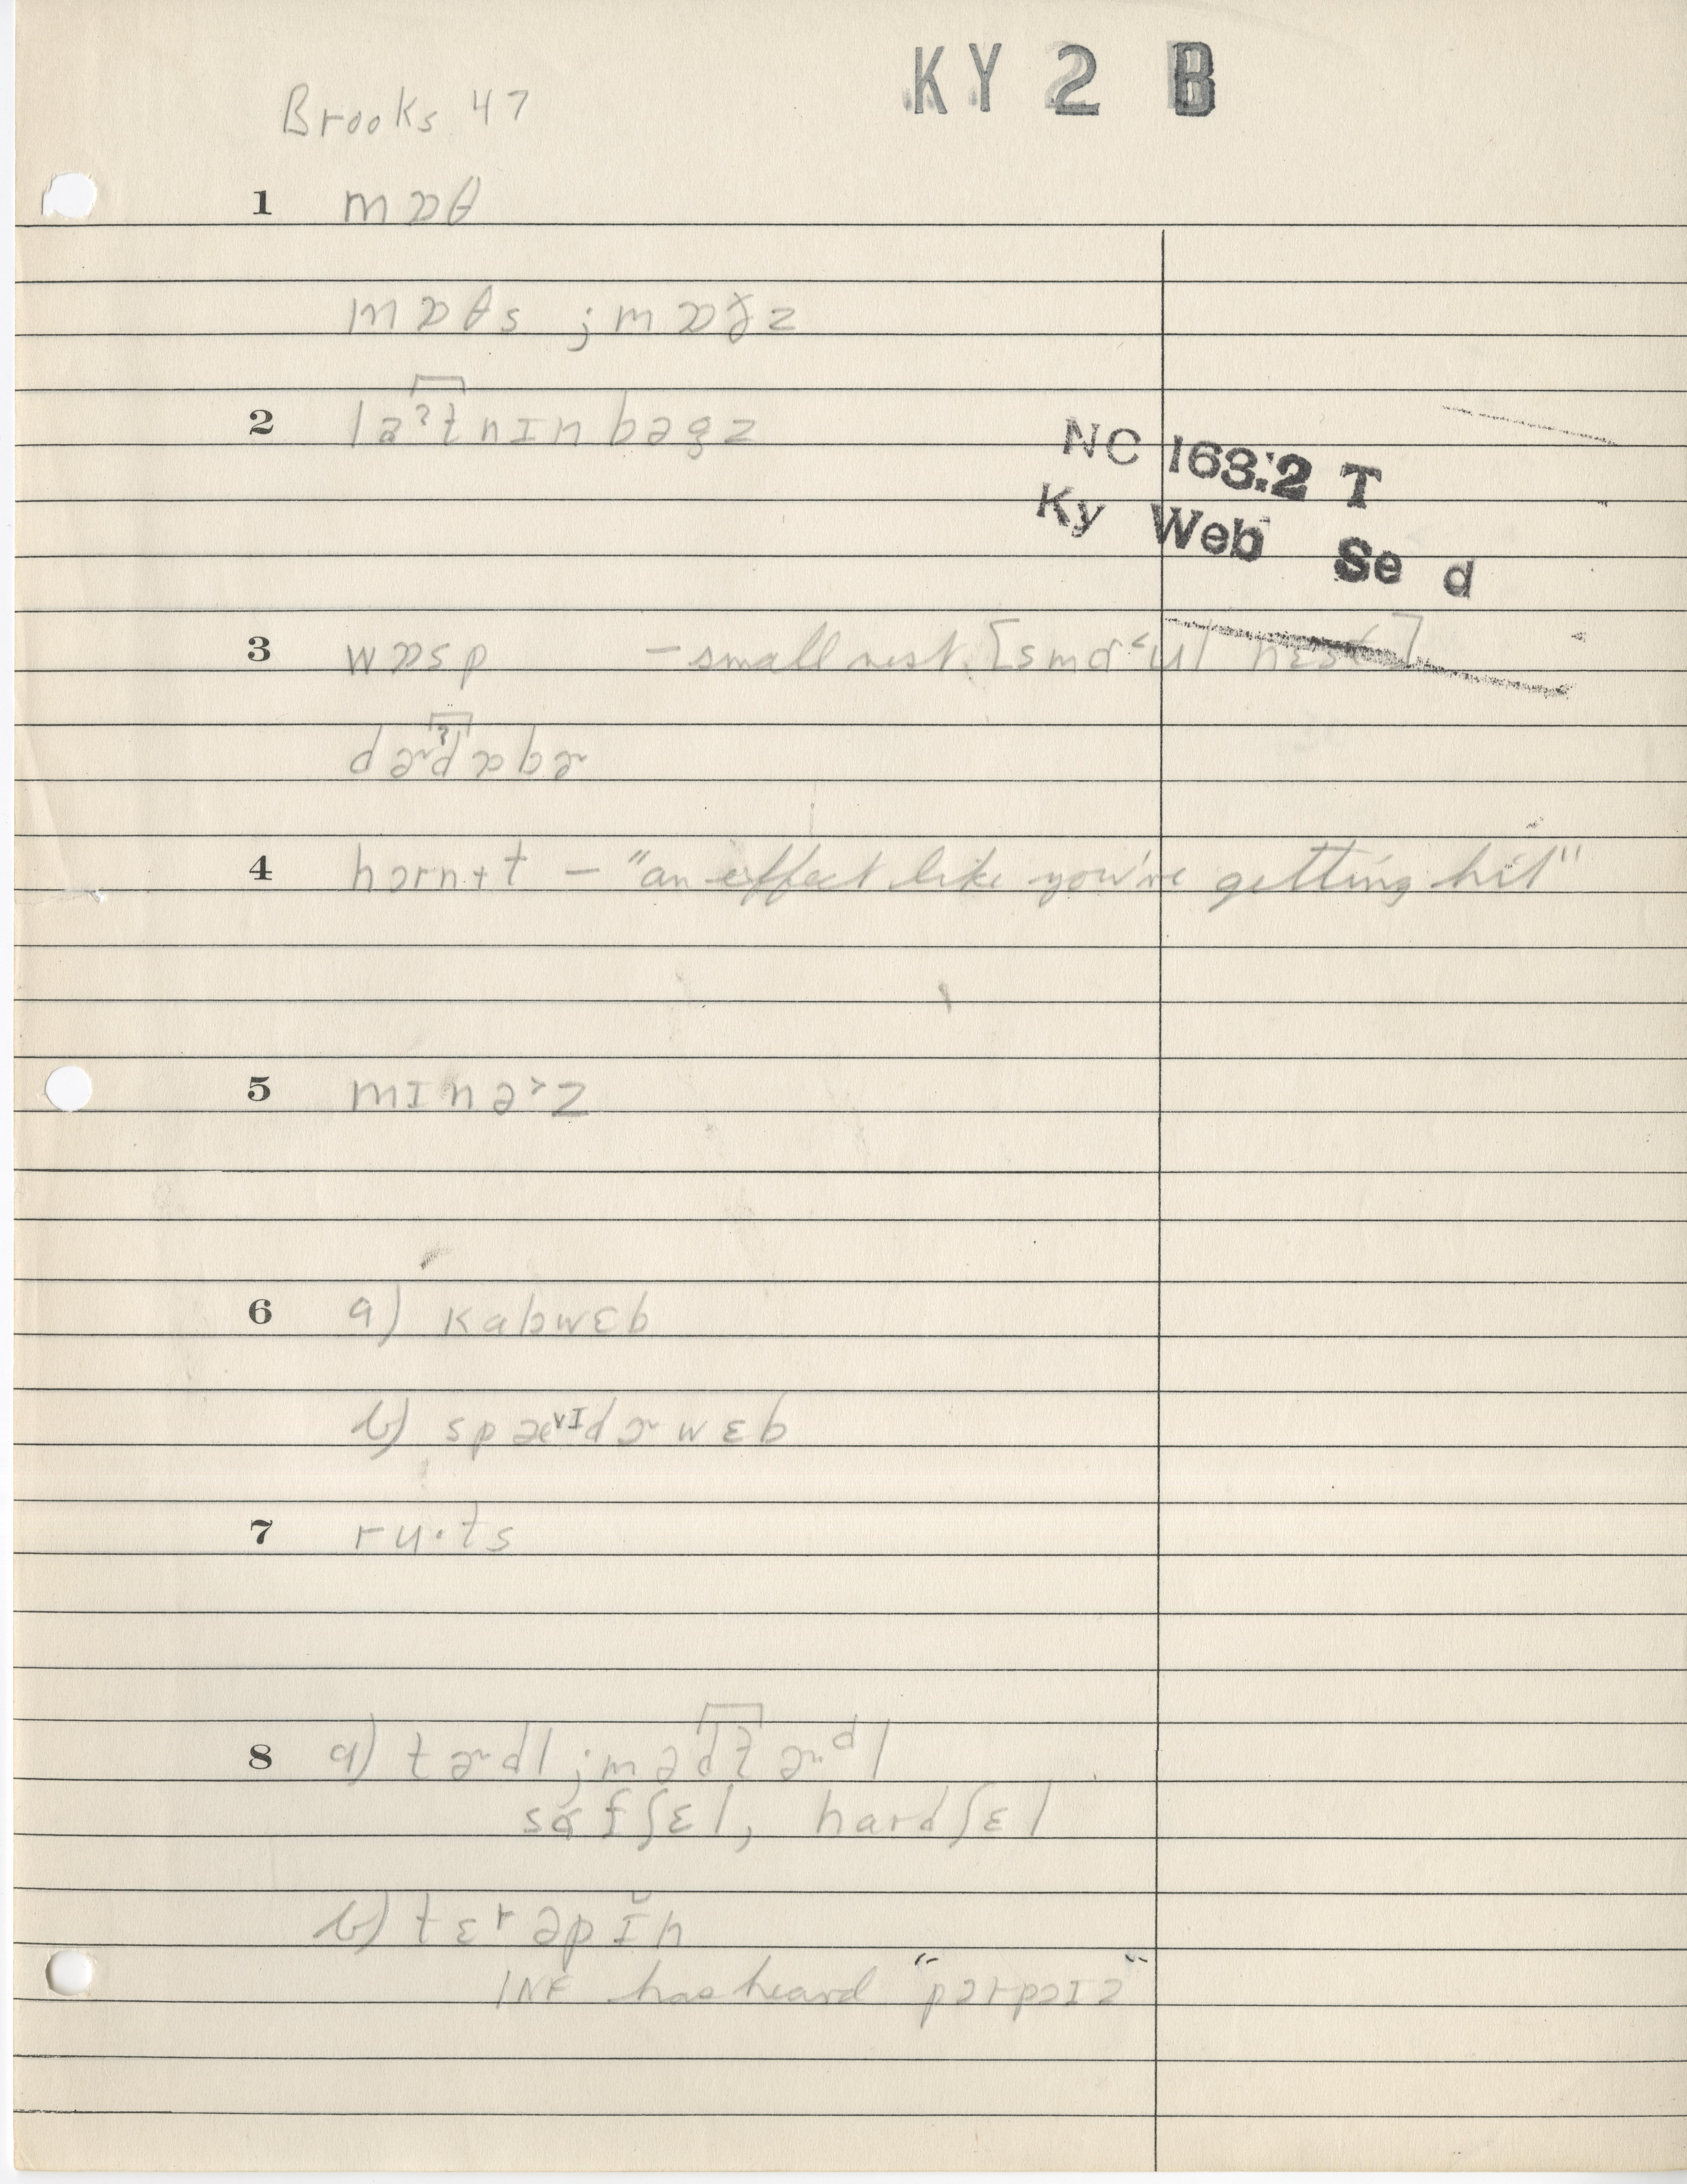 KY 2 B
Brooks 47
1 mɒθ
mɒθs ; mɒðz
2 la ˀt nɪn bəgz
NC 163.2 T
Ky Web Se d
3 wɒsp – small nest. [smɑ˂ul nɛst]
dɚˀdɒbɚ
4 hɔrnɨt – "an effect like you're getting hit"
5 mɪnə˃z
6 a) kabwɛb
b) spæ˅ɪdɚwɛb
7 ru·ts
8 a) tɚdl ; mədtɚdl
sɑfʃɛl, hardʃɛl
b) tɛrəpɪ̆n
INF has heard "pɔrpɔɪz"